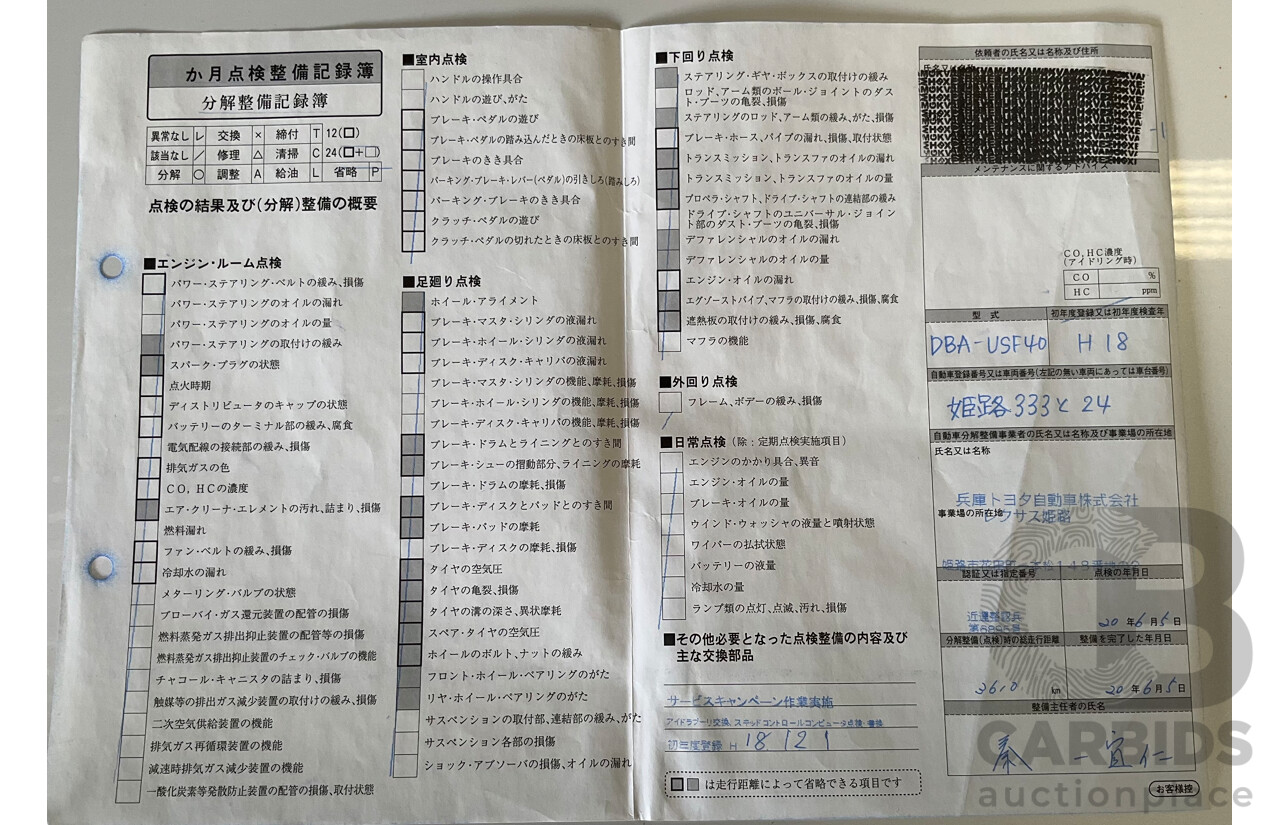 か月点検整備記録簿
分解整備記録簿
異常なし レ 交換 × 締付 T 12(□)
該当なし ／ 修理 △ 清掃 C 24(□+□)
分解 ○ 調整 A 給油 L 省略 P
点検の結果及び(分解)整備の概要
■エンジン・ルーム点検
パワー・ステアリング・ベルトの緩み、損傷
パワー・ステアリングのオイルの漏れ
パワー・ステアリングのオイルの量
パワー・ステアリングの取付けの緩み
スパーク・プラグの状態
点火時期
ディストリビュータのキャップの状態
バッテリーのターミナル部の緩み、腐食
電気配線の接続部の緩み、損傷
排気ガスの色
CO, HCの濃度
エア・クリーナ・エレメントの汚れ、詰まり、損傷
燃料漏れ
ファン・ベルトの緩み、損傷
冷却水の漏れ
メターリング・バルブの状態
ブローバイ・ガス還元装置の配管の損傷
燃料蒸発ガス排出抑止装置の配管等の損傷
燃料蒸発ガス排出抑止装置のチェック・バルブの機能
チャコール・キャニスタの詰まり、損傷
触媒等の排出ガス減少装置の取付けの緩み、損傷
二次空気供給装置の機能
排気ガス再循環装置の機能
減速時排気ガス減少装置の機能
一酸化炭素等発散防止装置の配管の損傷、取付状態
■室内点検
ハンドルの操作具合
ハンドルの遊び、がた
ブレーキ・ペダルの遊び
ブレーキ・ペダルの踏み込んだときの床板とのすき間
ブレーキのきき具合
パーキング・ブレーキ・レバー(ペダル)の引きしろ(踏みしろ)
パーキング・ブレーキのきき具合
クラッチ・ペダルの遊び
クラッチ・ペダルの切れたときの床板とのすき間
■足廻り点検
ホイール・アライメント
ブレーキ・マスタ・シリンダの液漏れ
ブレーキ・ホイール・シリンダの液漏れ
ブレーキ・ディスク・キャリパの液漏れ
ブレーキ・マスタ・シリンダの機能、摩耗、損傷
ブレーキ・ホイール・シリンダの機能、摩耗、損傷
ブレーキ・ディスク・キャリパの機能、摩耗、損傷
ブレーキ・ドラムとライニングとのすき間
ブレーキ・シューの摺動部分、ライニングの摩耗
ブレーキ・ドラムの摩耗、損傷
ブレーキ・ディスクとパッドとのすき間
ブレーキ・パッドの摩耗
ブレーキ・ディスクの摩耗、損傷
タイヤの空気圧
タイヤの亀裂、損傷
タイヤの溝の深さ、異状摩耗
スペア・タイヤの空気圧
ホイールのボルト、ナットの緩み
フロント・ホイール・ベアリングのがた
リヤ・ホイール・ベアリングのがた
サスペンションの取付部、連結部の緩み、がた
サスペンション各部の損傷
ショック・アブソーバの損傷、オイルの漏れ
■下回り点検
ステアリング・ギヤ・ボックスの取付けの緩み
ロッド、アーム類のボール・ジョイントのダス
ト・ブーツの亀裂、損傷
ステアリングのロッド、アーム類の緩み、がた、損傷
ブレーキ・ホース、パイプの漏れ、損傷、取付状態
トランスミッション、トランスファのオイルの漏れ
トランスミッション、トランスファのオイルの量
プロペラ・シャフト、ドライブ・シャフトの連結部の緩み
ドライブ・シャフトのユニバーサル・ジョイン
ト部のダスト・ブーツの亀裂、損傷
デファレンシャルのオイルの漏れ
デファレンシャルのオイルの量
エンジン・オイルの漏れ
エグゾーストパイプ、マフラの取付けの緩み、損傷、腐食
遮熱板の取付けの緩み、損傷、腐食
マフラの機能
■外回り点検
フレーム、ボデーの緩み、損傷
■日常点検 (除：定期点検実施項目)
エンジンのかかり具合、異音
エンジン・オイルの量
ブレーキ・オイルの量
ウインド・ウォッシャの液量と噴射状態
ワイパーの払拭状態
バッテリーの液量
冷却水の量
ランプ類の点灯、点滅、汚れ、損傷
■その他必要となった点検整備の内容及び
主な交換部品
サービスキャンペーン作業実施
アイドラプーリ交換、スキッドコントロールコンピュータ点検・書換
初年度登録 H 18 12 1
□■は走行距離によって省略できる項目です
依頼者の氏名又は名称及び住所
メンテナンスに関するアドバイス
CO, HC濃度
(アイドリング時)
CO %
HC ppm
型 式 初年度登録又は初年度検査年
DBA-USF40 H 18
自動車登録番号又は車両番号(左記の無い車両にあっては車台番号)
姫路 333 と 24
自動車分解整備事業者の氏名又は名称及び事業場の所在地
氏名又は名称
兵庫トヨタ自動車株式会社
事業場の所在地 レクサス姫路
認証又は指定番号 点検の年月日
20 年 6 月 5 日
分解整備(点検)時の総走行距離 整備を完了した年月日
3610 km 20 年 6 月 5 日
整備主任者の氏名
秦 一宜仁
お客様控
CARBIDS
auctionplace